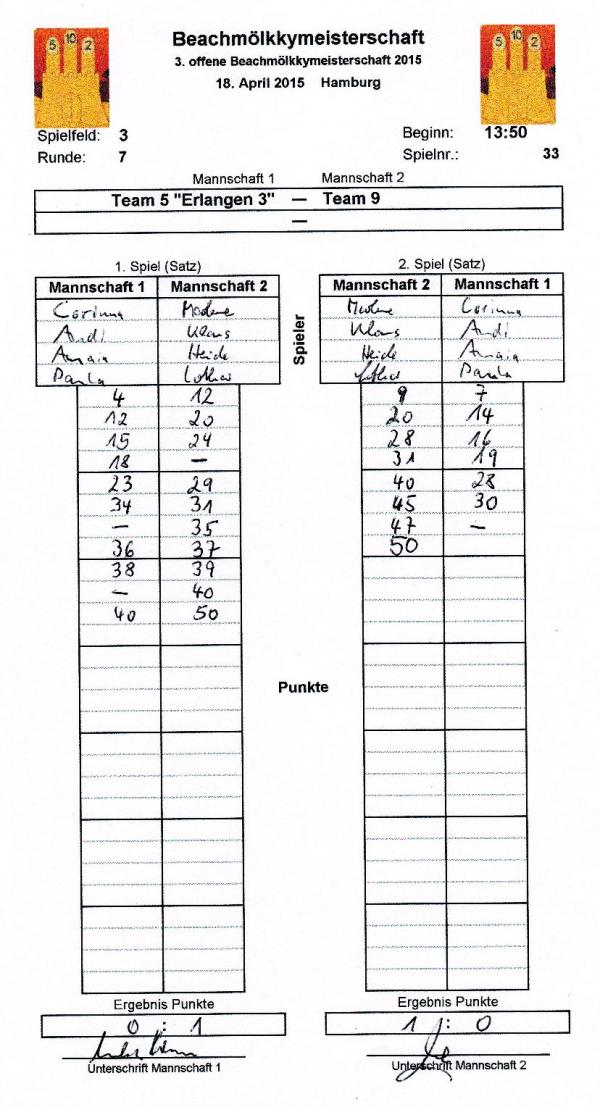 5 10 2
5 10 2
Beachmölkkymeisterschaft
3. offene Beachmölkkymeisterschaft 2015
18. April 2015 Hamburg
Spielfeld: 3 Beginn: 13:50
Runde: 7 Spielnr.: 33
Mannschaft 1 Mannschaft 2
Team 5 "Erlangen 3" — Team 9
—
1. Spiel (Satz) 2. Spiel (Satz)
Mannschaft 1 Mannschaft 2 Mannschaft 2 Mannschaft 1
Corinna Corinna
Andi Klaus Spieler Klaus Andi
Amaia Heide Heide Amaia
Paula Lothar Lothar Paula
4 12 9 7
12 20 20 14
15 24 28 16
18 — 31 19
23 29 40 28
34 31 45 30
— 35 47 —
36 37 50
38 39
— 40
40 50
Punkte
Ergebnis Punkte Ergebnis Punkte
0 : 1 1 : 0
Unterschrift Mannschaft 1 Unterschrift Mannschaft 2